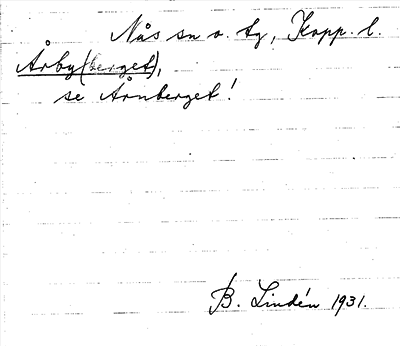 Nås sn o. tg, Kopp. l.
Årby(berget),
se Årnberget!
B. Lindén 1931.